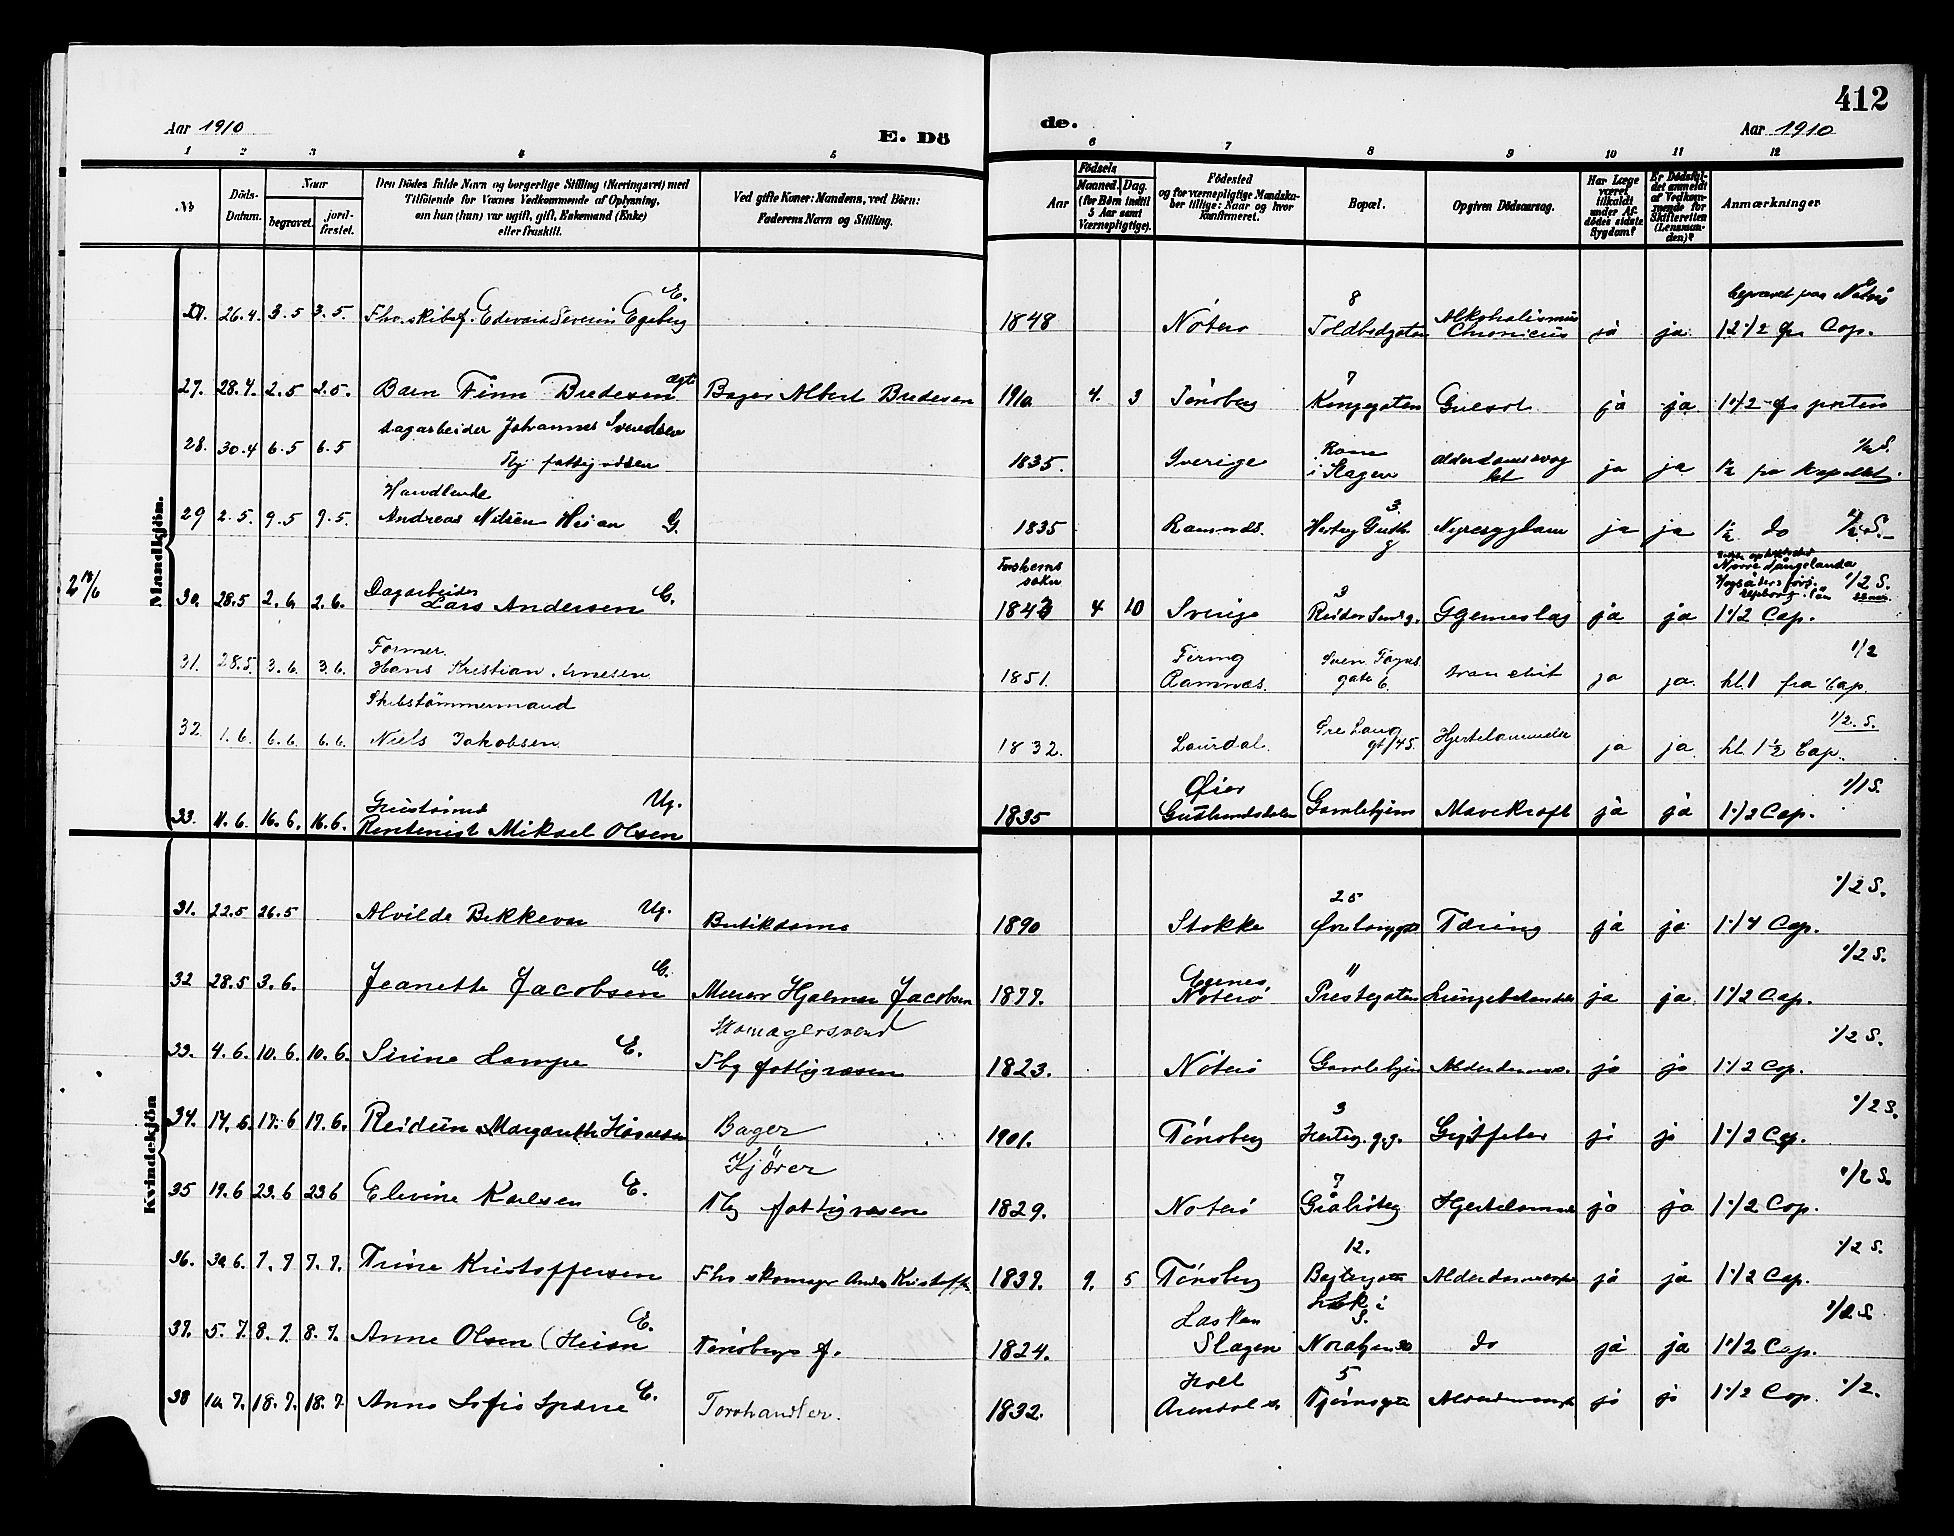 412
Aar 1910
E. Dö
de.
Aar 1910
1 2 3 4 5 6 7 8 9 10 11 12
№
Döds-Datum.
Naar
begravet.
jord-fæstet.
Den Dödes fulde Navn og borgerlige Stilling (Næringsvei) med
Tilföiende for Voxnes Vedkommende af Oplysning,
om hun (han) var ugift, gift, Enkemand (Enke)
eller fraskilt.
Ved gifte Koner: Mandens, ved Börn:
Faderens Navn og Stilling.
Aar
Födsels
Maaned. Dag.
(for Börn indtil
5 Aar samt
Værnepligtige).
Födested
og for værnepligtige Mandska-
ber tillige: Naar og hvor
konfirmeret.
Bopæl.
Opgiven Dödsaarsag.
Har Læge
været
tilkaldt
under Af-
dödes sidste
Sygdom?
Er Dödsfal-
det anmeldt
af Vedkom-
mende for
Skifteretten
(Lensman-
den)?
Anmærkninger
Mandkjön.
26.4. 3.5 3.5. Fhv. skibsf. Edvard Severin Egeberg E. 1848 Nöterö 8 Toldbodgaten Alkoholismus Chronicus ja ja begravet paa Nöterö 12 1/2 fra Cap.
27. 28.4. 2.5 2.5. Barn Finn Bredesen ægte Bager Albert Bredesen 1910 4. 3 Tönsberg 7 Kongegaten Gulsot ja ja 1 1/2 fr porten
28. 30.4 6.5 6.5 Dagarbeider Johannes Svendsen Fhg fattigvæsen 1835. Sverige i Slagen Alderdomssvaghet ja ja 1/2 fra Kapellet 1/2 S.
29 2.5. 9.5 9.5. Handlende Andreas Nilsen Heian G. 1835 Ramnæs. Hertug Guth. g 3. Nyresygdom ja ja 1/2 do 1/2 S.
2 18/6
30. 28.5 2.6. 2.6. Dagarbeider Lars Andersen E. 1843 4 10 Sverige 3 Reidar Sendg. Hjerneslag ja ja 1 1/2 Cap. 1/2 S.
31. 28.5. 3.6. 3.6. Former. Hans Kristian Arnesen 1851. Ramnæs. Sven Foyns gate 6. ja ja. kl. 1 fra Cap. 1/2
32. 1.6. 6.6. 6.6. Skibstömmermand Niels Jakobsen 1832. Laurdal. Öre Lang gt/45. Hjertelammelse ja ja kl. 1 1/2 Cap. 1/2. S.
33. 11.6. 16.6. 16.6. Rentenist Mikael Olsen Ug. 1835 Øier Gudbrandsdalen Gamlehjem Mavekræft ja ja 1 1/2 Cap. 1/1 S.
Kvindekjön
31. 22.5 26.5 Alvilde Bekkevar Ug. Butikdame 1890 Stokke 25 Øvrelanggate Tæring ja ja 1 1/4 Cap. 1/2 S.
32 28.5 3.6. Jeanette Jacobsen G. Murer Hjalmar Jacobsen 1877. Egenes, Nöterö 11 Prestegaten Lungebetændelse ja ja 1 1/2 Cap. 1/2 S.
33. 4.6. 10.6. 10.6. Sirine Lampe E. Skomagersvend Fhg fattigvæsen 1823. Nöterö Gamlehjem Alderdomss. ja ja 1 1/2 Cap. 1/2 S.
34. 14.6. 17.6 17.6. Reidun Margarethe Bager 1901. Tönsberg 3 Hertug. g.g. Gigtfeber ja ja 1 1/2 Cap. 1/2 S.
35 19.6 23.6 23.6 Elevine Karlsen E. Kjörer Fhg fattigvæsen 1829. Nöterö 7 Gråbröbg Hjertelammelse ja ja 1 1/2 Cap. 1/2 S.
36. 30.6. 7.7 7.7. Trine Kristoffersen Fhv skomager Anders Kristoffs. 1839. 9. 5 Tönsberg 12. Bøjtergaten Alderdomssv. ja ja 1 1/2 Cap. 1/2 S.
37. 5.7. 8.7. 8.7. Anne Olsen (Heian E. Tönsbergs f. 1824. Slagen do ja ja 1 1/2 Cap. 1/2 S
38 10.7. 18.7. 18.7. Anne Sofie E. 1832. Holt Arendal 5 Tjömegaten ja ja 1 1/2 Cap. 1/2.